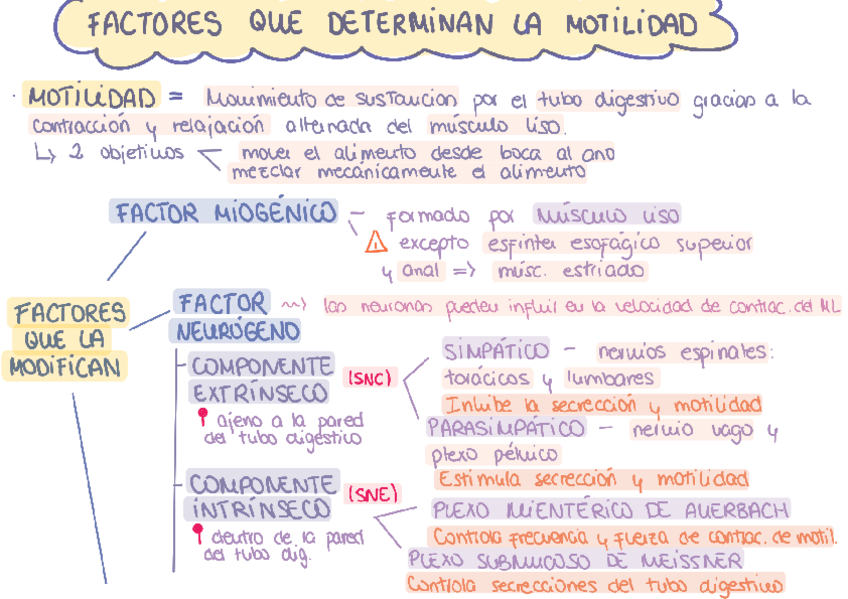 FACTORES QUE DETERMINAN LA MOTILIDAD
MOTILIDAD = Movimiento de sustancias por el tubo digestivo gracias a la
contracción y relajación alternada del músculo liso.
↳ 2 objetivos
mover el alimento desde boca al ano
mezclar mecánicamente el alimento
FACTOR MIOGÉNICO – formado por MÚSCULO LISO
⚠ excepto esfínter esofágico superior
y anal => músc. estriado
FACTORES
QUE LA
MODIFICAN
FACTOR
NEURÓGENO
las neuronas pueden influir en la velocidad de contrac. del ML
COMPONENTE
EXTRÍNSECO
(SNC)
ajeno a la pared
del tubo digestivo
SIMPÁTICO – nervios espinales:
torácicos y lumbares
Inhibe la secrección y motilidad
PARASIMPÁTICO – nervio vago y
plexo pélvico
Estimula secrección y motilidad
COMPONENTE
INTRÍNSECO
(SNE)
dentro de la pared
del tubo dig.
PLEXO MIENTÉRICO DE AUERBACH
Controla frecuencia y fuerza de contrac. de motil.
PLEXO SUBMUCOSO DE MEISSNER
Controla secrecciones del tubo digestivo